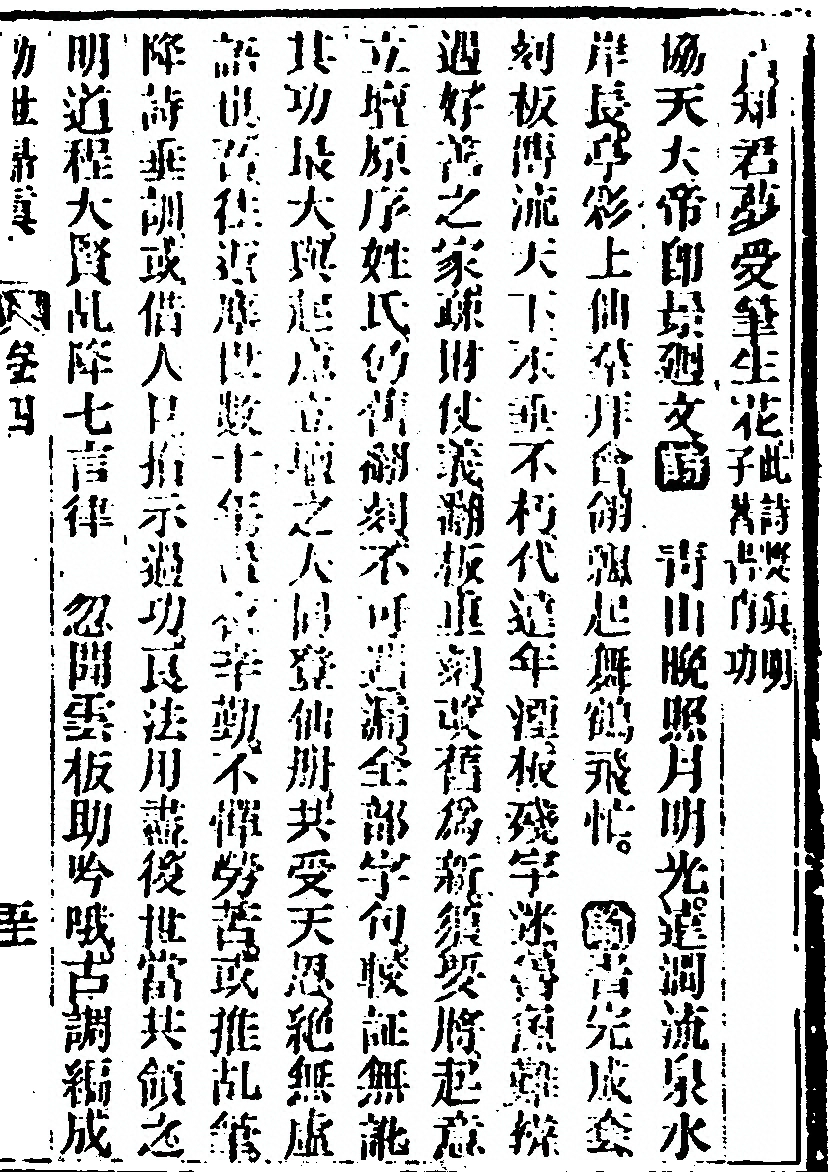 知君夢受筆生花此詩獎真明
子舊書肖功
協天大帝印景廻文詩 青山晚照月明光遠澗流泉水
岸長亭彩上仙萃拜會翩翻起舞鶴飛忙。諭書完成套
刻板傳流天下永垂不朽代遠年湮板殘字迷魯魚難辨
遇好善之家疎財仗義翻板重刻改舊為新須要將起意
立壇原序姓氏仍舊翻刻不可遺漏全部字句較証無訛
其功最大與起意立壇之人同登仙册共受天恩絕無虛
語也吾往返塵世數十年辛勤不憚勞苦或推乩筆
降詩垂訓或借人口指示過功良法用盡後世當共領之
明道程大賢乩降七言律 忽聞雲板助吟哦古調編成
卷四